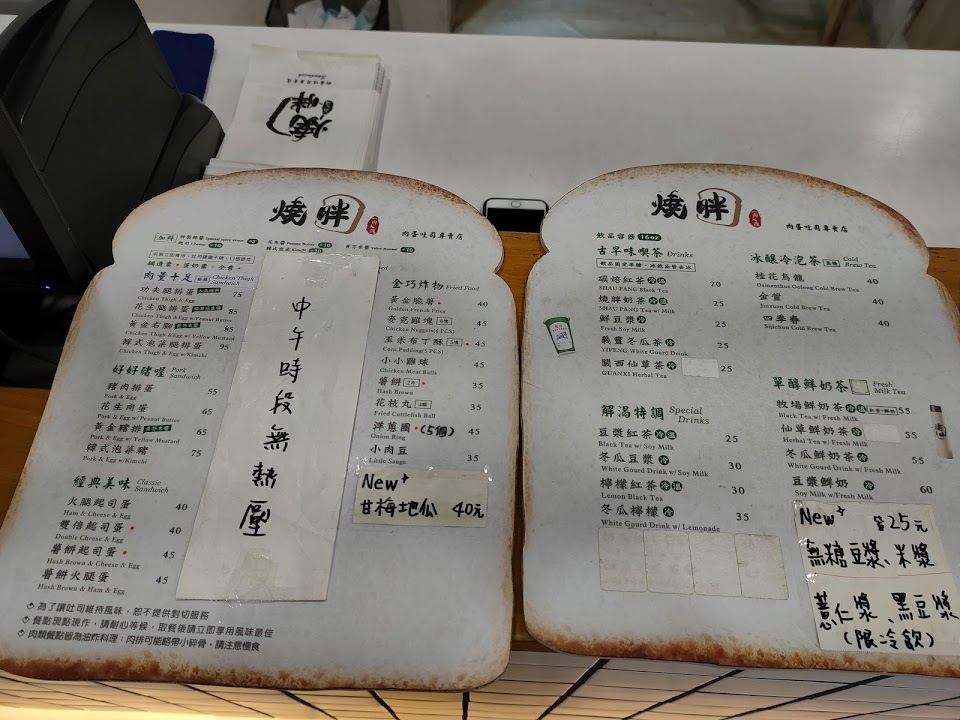 燒胖
肉蛋吐司專賣店
加料
起司 Cheese +10
花生醬 Peanut Butter +10
韓式泡菜 Kimchi
黃芥末醬 Yellow Mustard +10
肉量十足 Chicken Thigh Sandwich
功夫腿排蛋 75
Chicken Thigh & Egg
花生腿排蛋 85
Chicken Thigh & Egg w/Peanut Butter
黃金右腳 85
Chicken Thigh & Egg w/ Yellow Mustard
韓式泡菜腿排蛋 95
Chicken Thigh & Egg w/Kimchi
好好豬喔 Pork Sandwich
豬肉排蛋 55
Pork & Egg
花生肉蛋 65
Pork & Egg w/ Peanut Butter
黃金豬排 65
Pork & Egg w/ Yellow Mustard
韓式泡菜豬 75
Pork & Egg w/Kimchi
經典美味 Classic Sandwich
火腿起司蛋 40
Ham & Cheese & Egg
雙倍起司蛋 40
Double Cheese & Egg
薯餅起司蛋 45
Hash Brown & Cheese & Egg
薯餅火腿蛋 45
Hash Brown & Ham & Egg
中午時段無熱壓
金巧炸物 Fried Food
黃金脆薯 40
Golden French Fries
麥克雞塊 45
Chicken Nuggets(6 PCS)
玉米布丁酥 45
Corn Pudding(5 PCS)
小小雞球 45
Chicken Meat Balls
薯餅 2片 35
Hash Brown
花枝丸 35
Fried Cuttlefish Ball
洋蔥圈(5個) 45
Onion Ring
小肉豆 35
New
甘梅地瓜 40元
為了讓吐司維持風味，恕不提供對切服務
餐點現點現作，請耐心等候，取餐後請立即享用風味最佳
肉類餐點皆為油炸料理；肉排可能略帶小碎骨，請注意慢食
燒胖
肉蛋吐司專賣店
飲品容器 16oz
古早味喫茶 Drinks
飲品固定半糖，冰飲品皆去冰
碳焙紅茶 冷 溫 20
SHAU FANG Black Tea
燒胖奶茶 冷 溫 25
SHAU FANG Tea w/ Milk
鮮豆漿 冷 25
Fresh Soy Milk
義豐冬瓜茶 冷 25
YIFENG White Gourd Drink
關西仙草茶 冷 25
GUANXI Herbal Tea
解渴特調 Special Drinks
豆漿紅茶 冷 溫 25
Black Tea w/ Soy Milk
冬瓜豆漿 冷 30
White Gourd Drink w/ Soy Milk
檸檬紅茶 冷 溫 30
Lemon Black Tea
冬瓜檸檬 冷 35
White Gourd Drink w/ Lemonade
冰釀冷泡茶 無糖 Cold Brew Tea
桂花烏龍 40
Osmanthus Oolong Cold Brew Tea
金萱 40
Jinxuan Cold Brew Tea
四季春 40
Sijichun Cold Brew Tea
單醇鮮奶茶 Fresh Milk Tea
牧場鮮奶茶 冷 溫 55
Black Tea w/ Fresh Milk
仙草鮮奶茶 冷 55
Herbal Tea w/ Fresh Milk
冬瓜鮮奶茶 冷 55
White Gourd Drink w/ Fresh Milk
豆漿鮮奶 冷 60
Soy Milk w/Fresh Milk
New 皆25元
無糖豆漿、米漿
薏仁漿、黑豆漿
(限冷飲)